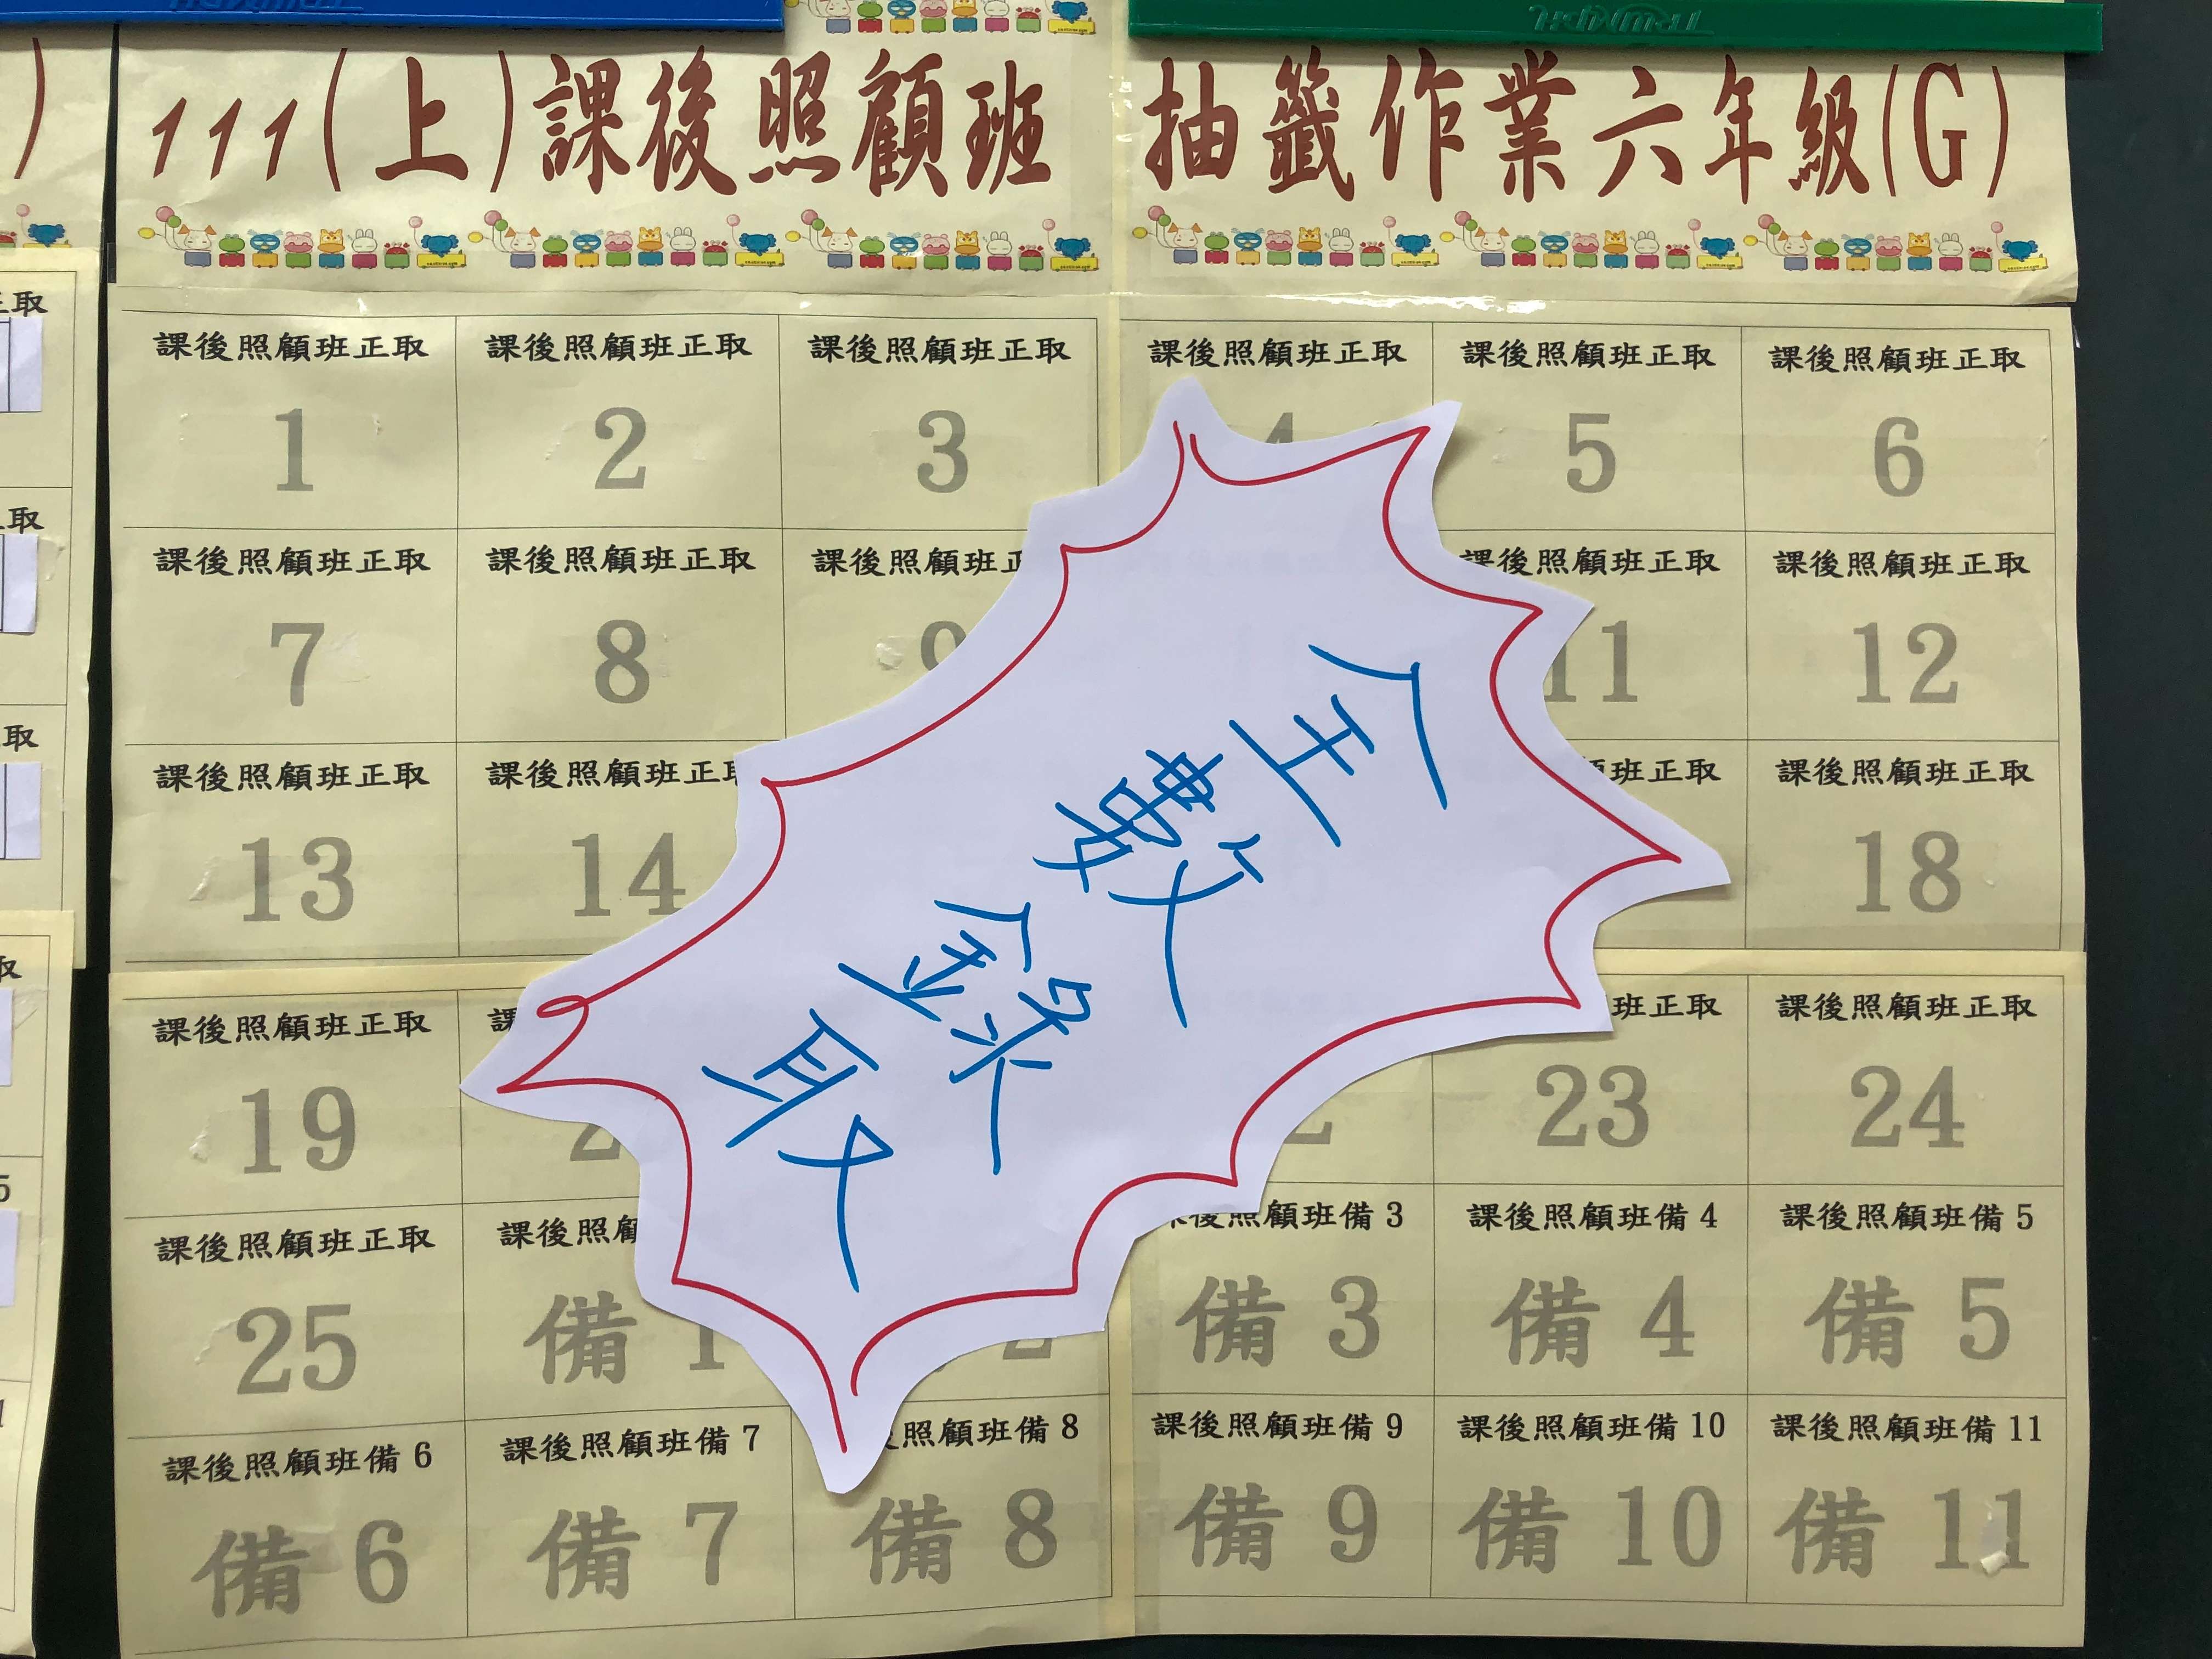 111(上)課後照顧班 抽籤作業六年級(G)
課後照顧班正取 課後照顧班正取 課後照顧班正取 課後照顧班正取 課後照顧班正取 課後照顧班正取
1 2 3 4 5 6
課後照顧班正取 課後照顧班正取 課後照顧班正 課後照顧班正取 課後照顧班正取
7 8 9 11 12
課後照顧班正取 課後照顧班正取 班正取 課後照顧班正取
13 14 18
全數錄取
課後照顧班正取 課 班正取 課後照顧班正取
19 2 2 23 24
課後照顧班正取 課後照顧 後照顧班備 3 課後照顧班備 4 課後照顧班備 5
25 備 1 2 備 3 備 4 備 5
課後照顧班備 6 課後照顧班備 7 照顧班備 8 課後照顧班備 9 課後照顧班備 10 課後照顧班備 11
備 6 備 7 備 8 備 9 備 10 備 11